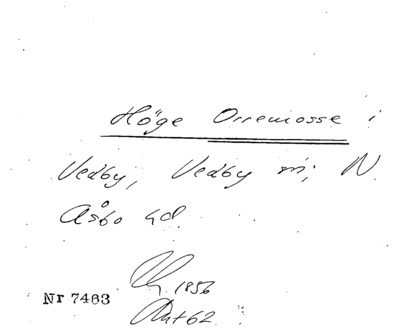 Höge Orremosse i
Vedby, Vedby sn, N.
Åsbo hd.
1856
Nr 7463
62